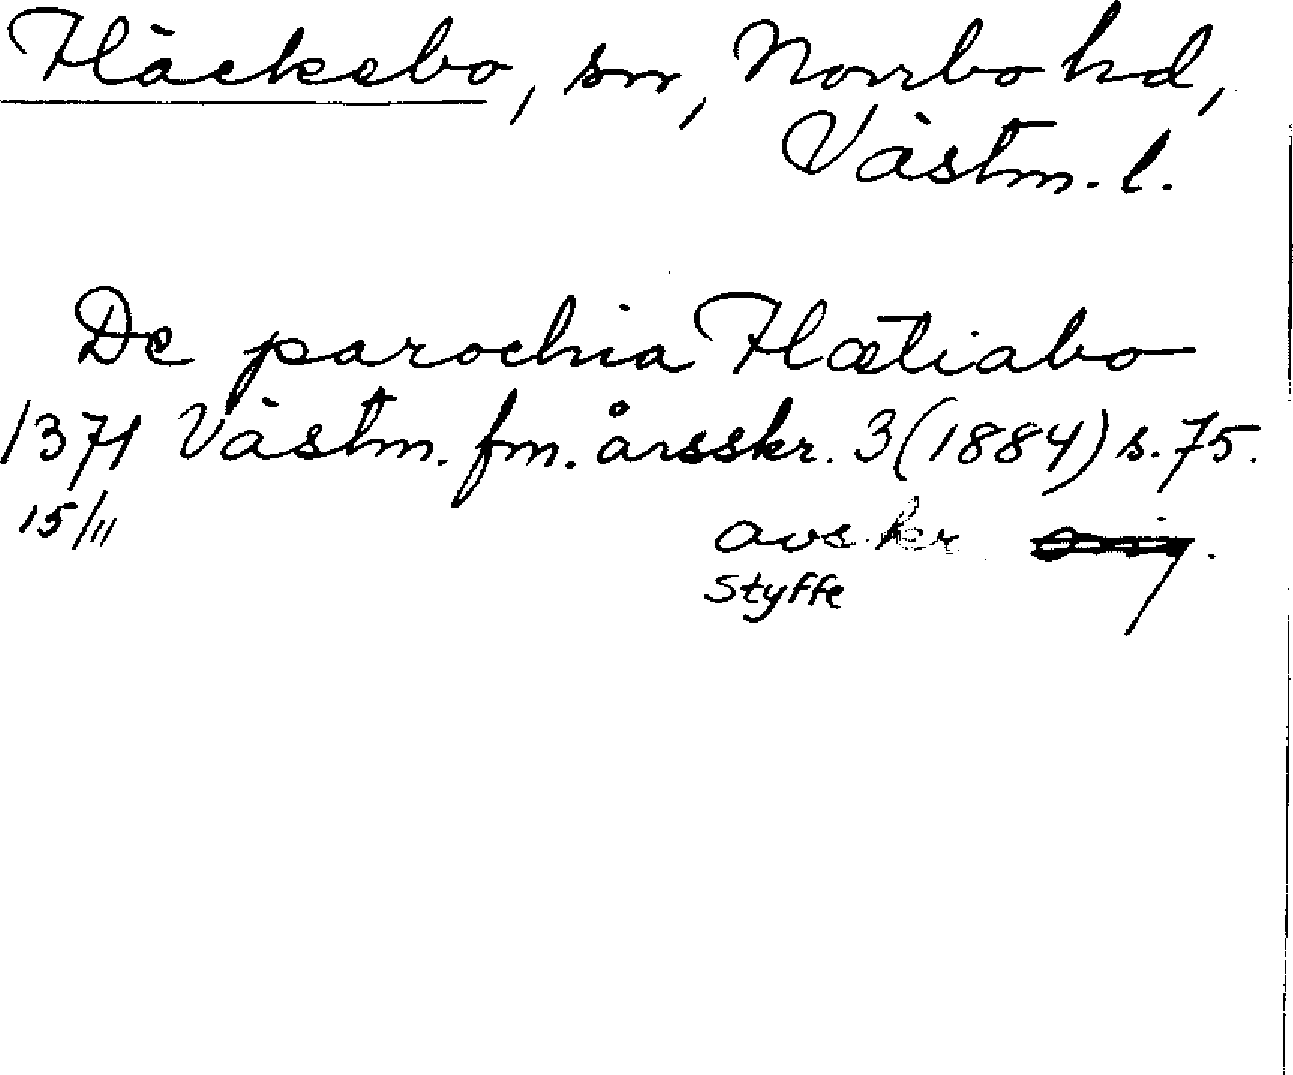 Fläckebo, sn, Norrbo hd,
Västm. l.
De parochia Flætiabo
1371 Västm. fm. årsskr. 3 (1884) s. 75.
15/11 avskr orig.
Styffe